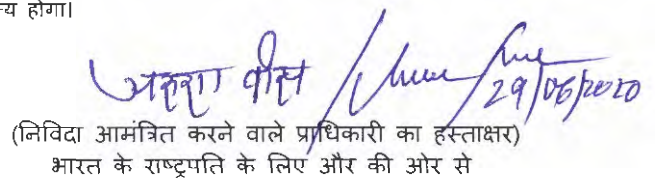 य होगा।
29/06/2020
(निविदा आमंत्रित करने वाले प्राधिकारी का हस्ताक्षर)
भारत के राष्ट्रपति के लिए और की ओर से